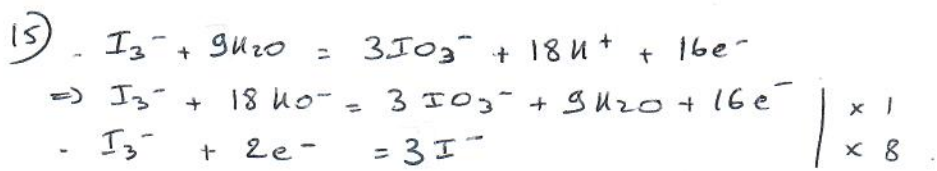 15) - I₃⁻ + 9H₂O = 3IO₃⁻ + 18H⁺ + 16e⁻
=> I₃⁻ + 18HO⁻ = 3IO₃⁻ + 9H₂O + 16e⁻ | × 1
- I₃⁻ + 2e⁻ = 3I⁻ | × 8.